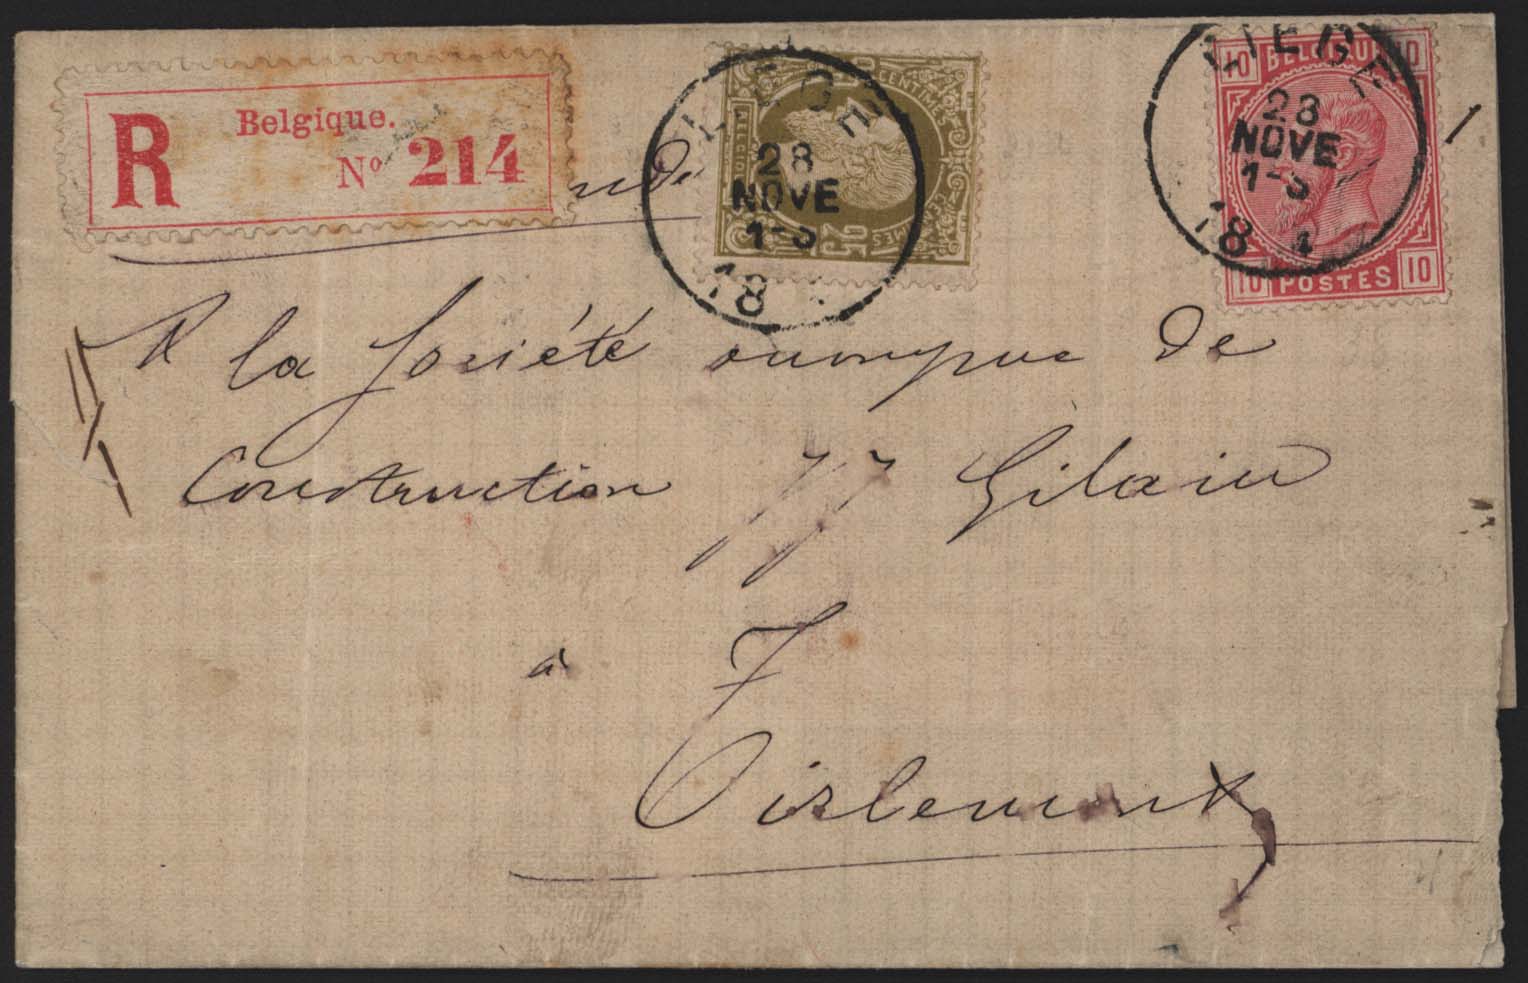 R Belgique.
Nº 214
LIEGE
28
NOVE
1-3
18
CENTIMES
BELGIQUE
25 CENTIMES 25
LIEGE
28
NOVE
1-3
18
10 BELGIQUE 10
10 POSTES 10
A la Société anonyme de
Construction JJ Gilain
à
Tirlemont